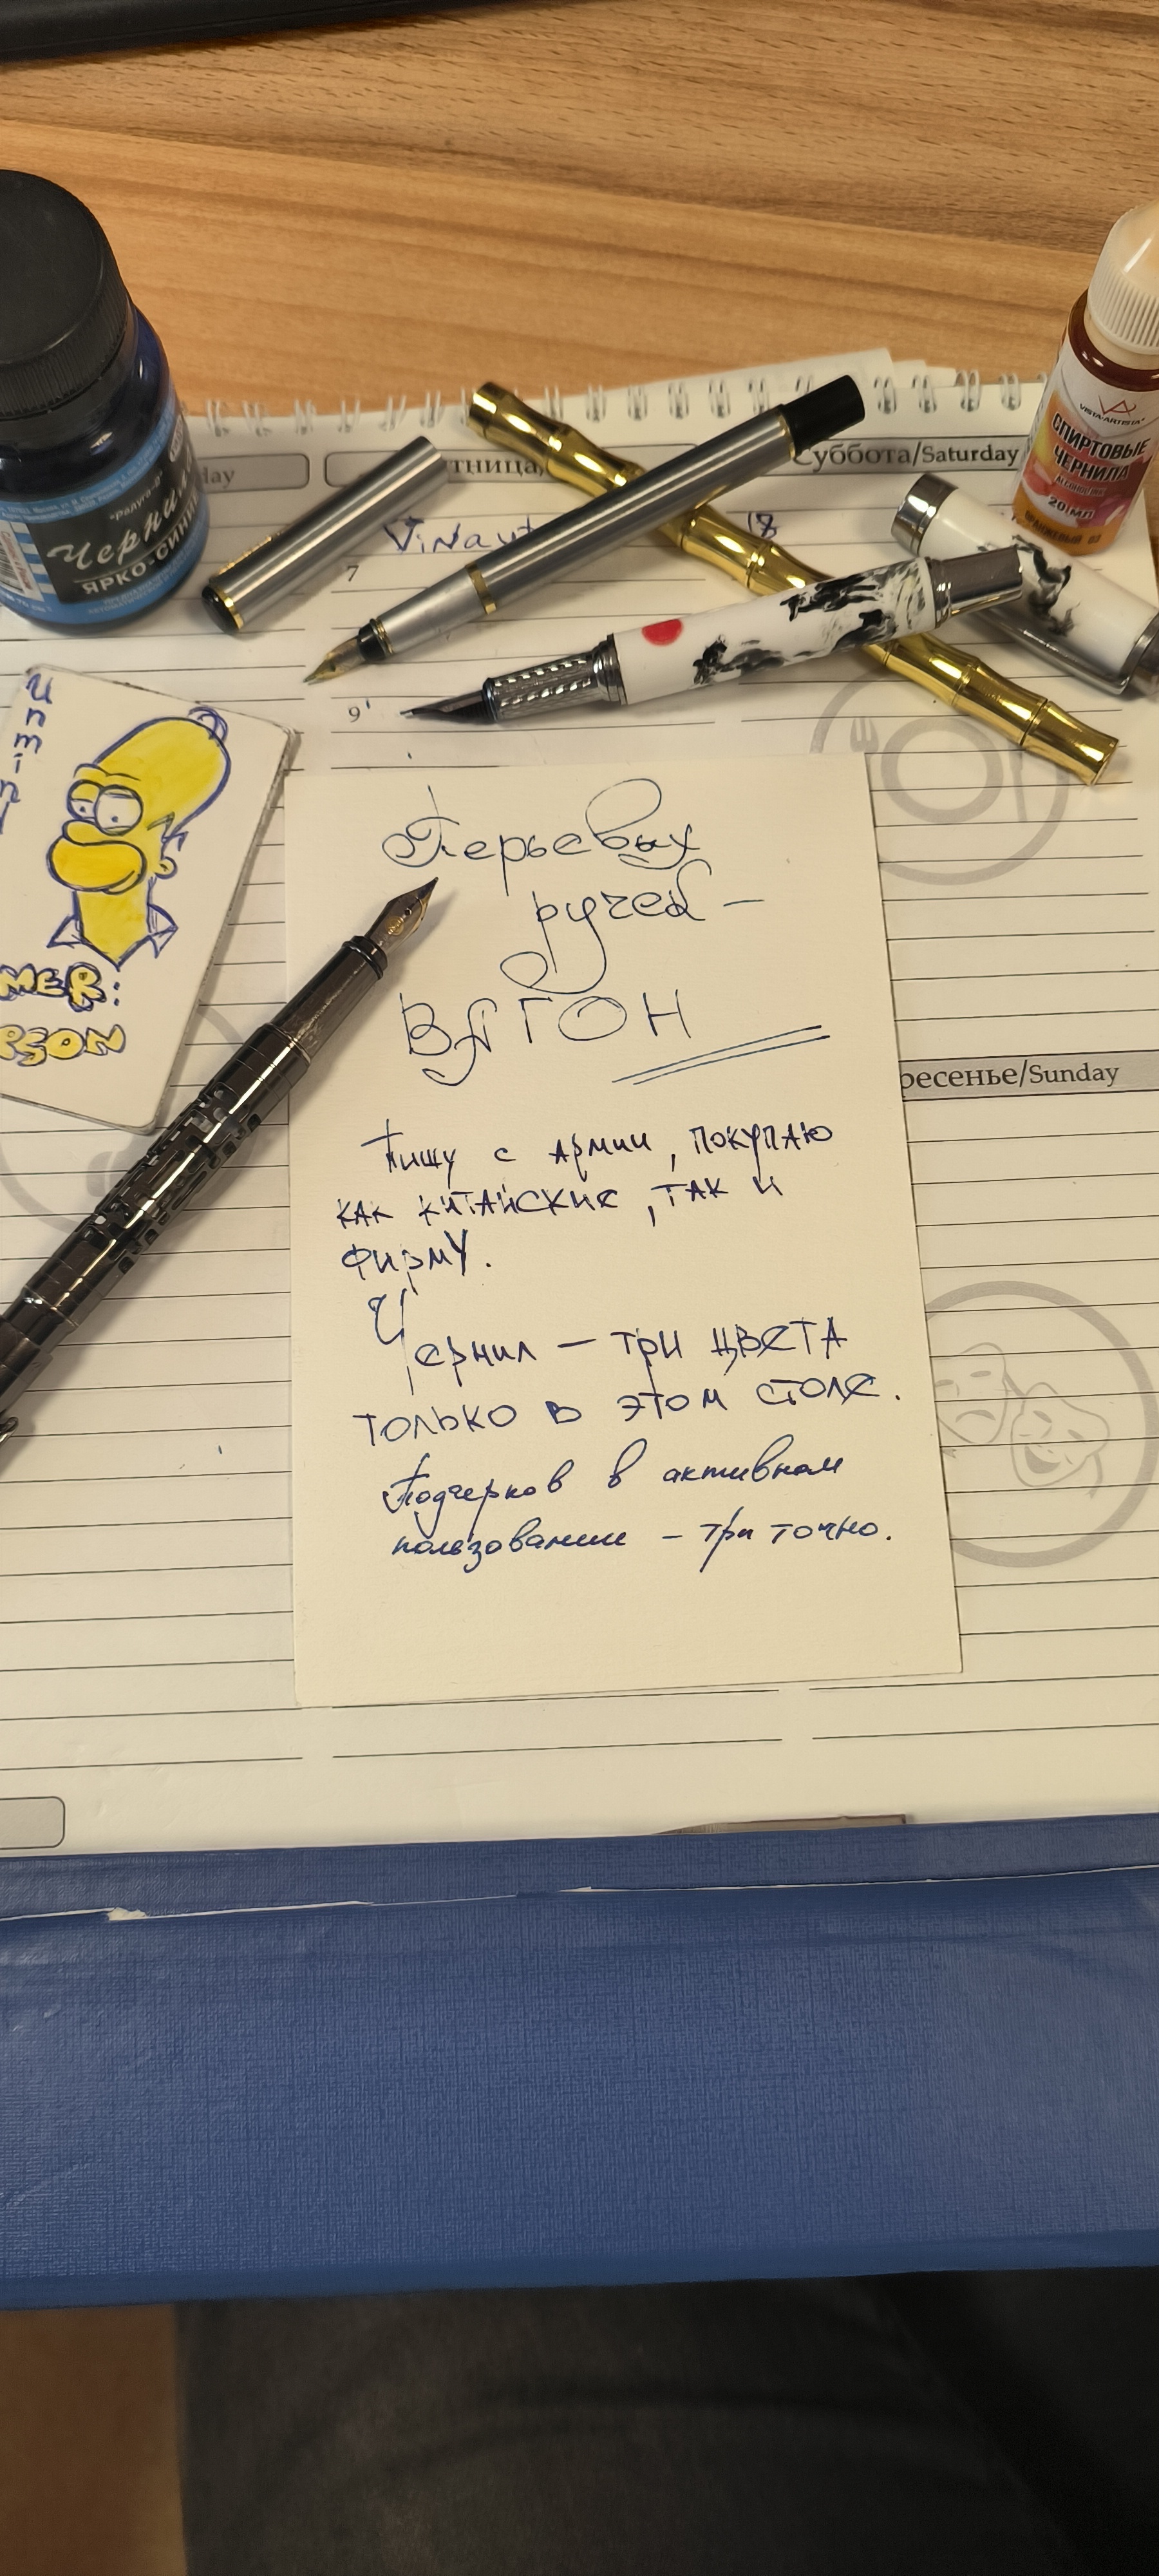 "Радуга-2"
Чернила
ЯРКО-СИНИЕ
day
тница
Суббота/Saturday
VISTA-ARTISTA
СПИРТОВЫЕ
ЧЕРНИЛА
20 МЛ
ОРАНЖЕВЫЙ 03
18
7
9
MER:
PSON
Перьевых
ручек –
ВАГОН
ресенье/Sunday
Пишу с армии, покупаю
как китайские, так и
фирму.
Чернил – три цвета
только в этом столе.
Подчерков в активном
пользовании – три точно.